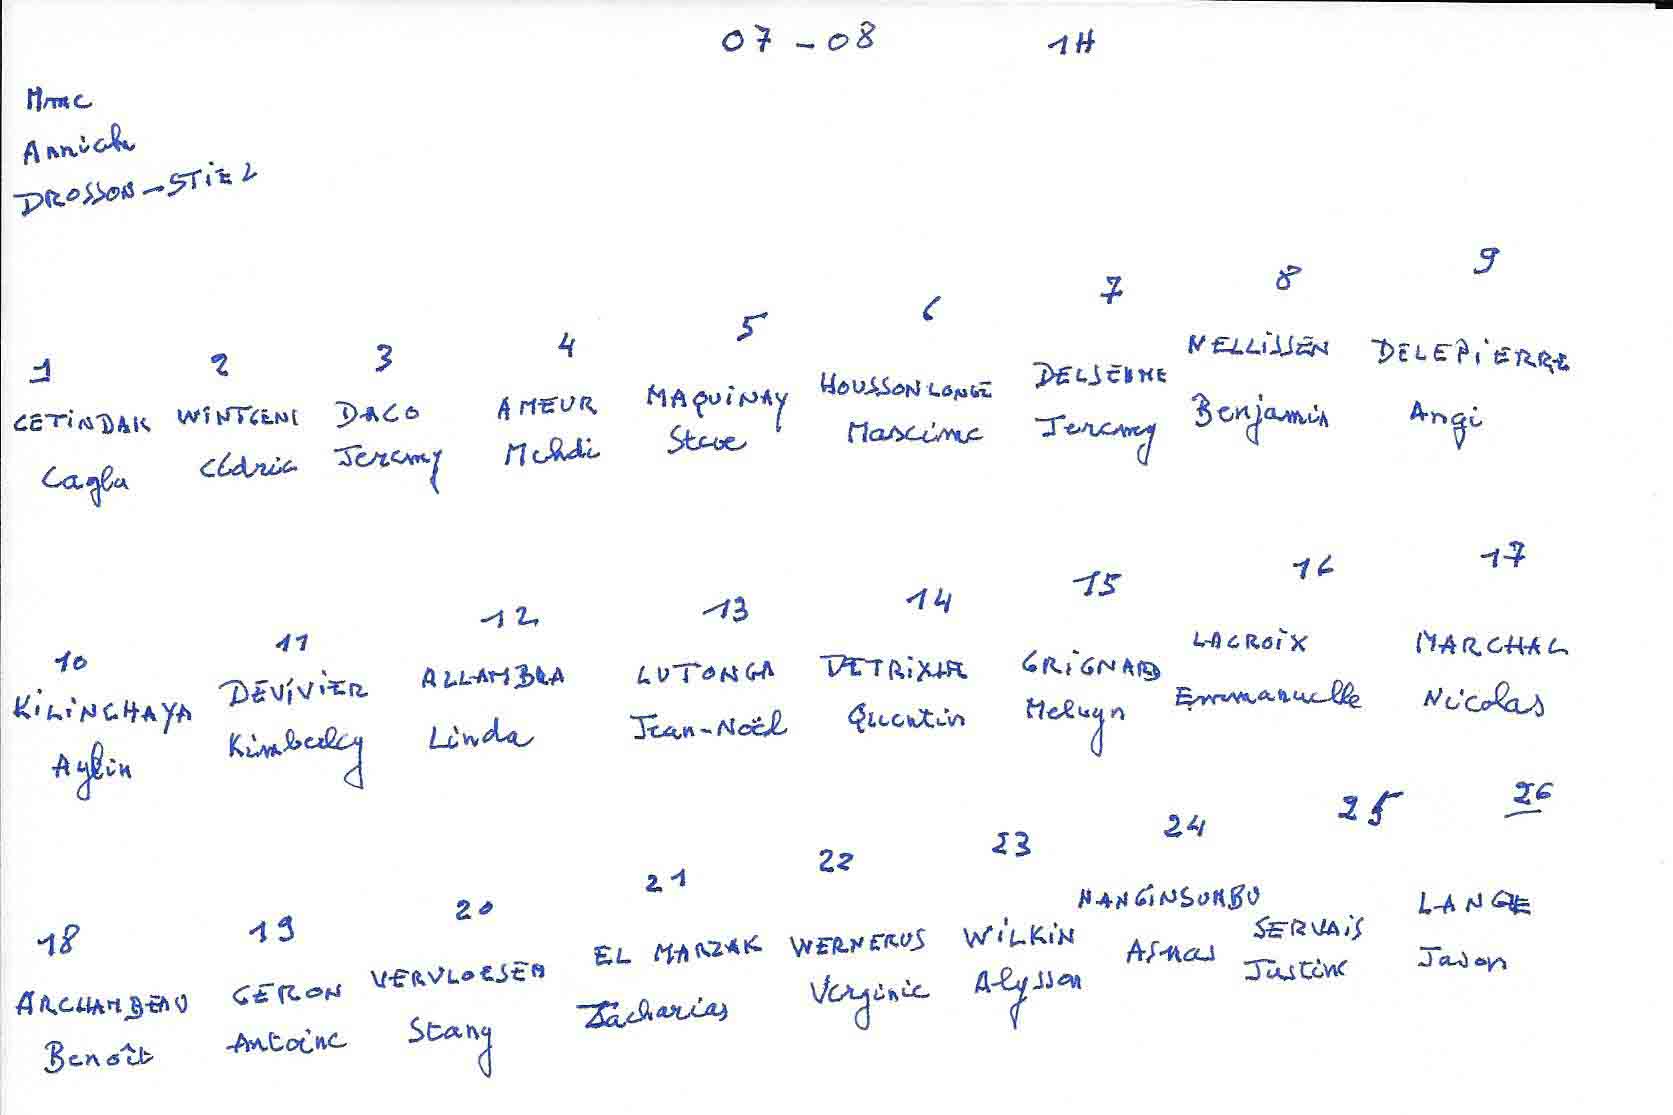 07-08 1H
Mme
Annick
DROSSON-STIEL
1 2 3 4 5 6 7 8 9
CETINDAK WINTGENS DACO AMEUR MAQUINAY HOUSSONLONGE DELSEMME NELLISSEN DELEPIERRE
Cagla Cédric Jeremy Mehdi Steve Maxime Jeremy Benjamin Angi
10 11 12 13 14 15 16 17
KILINCHAYA DEVIVIER ALLAMBRA LUTONGA DETRIXHE GRIGNARD LACROIX MARCHAL
Aylin Kimberley Linda Jean-Noël Quentin Melwyn Emmanuelle Nicolas
18 19 20 21 22 23 24 25 26
ARCHAMBEAU GERON VERVLOESEM EL MARZAK WERNERUS WILKIN SERVAIS LANGE
Benoît Antoine Stany Zacharias Verginie Alysson Asmas Justine Jason